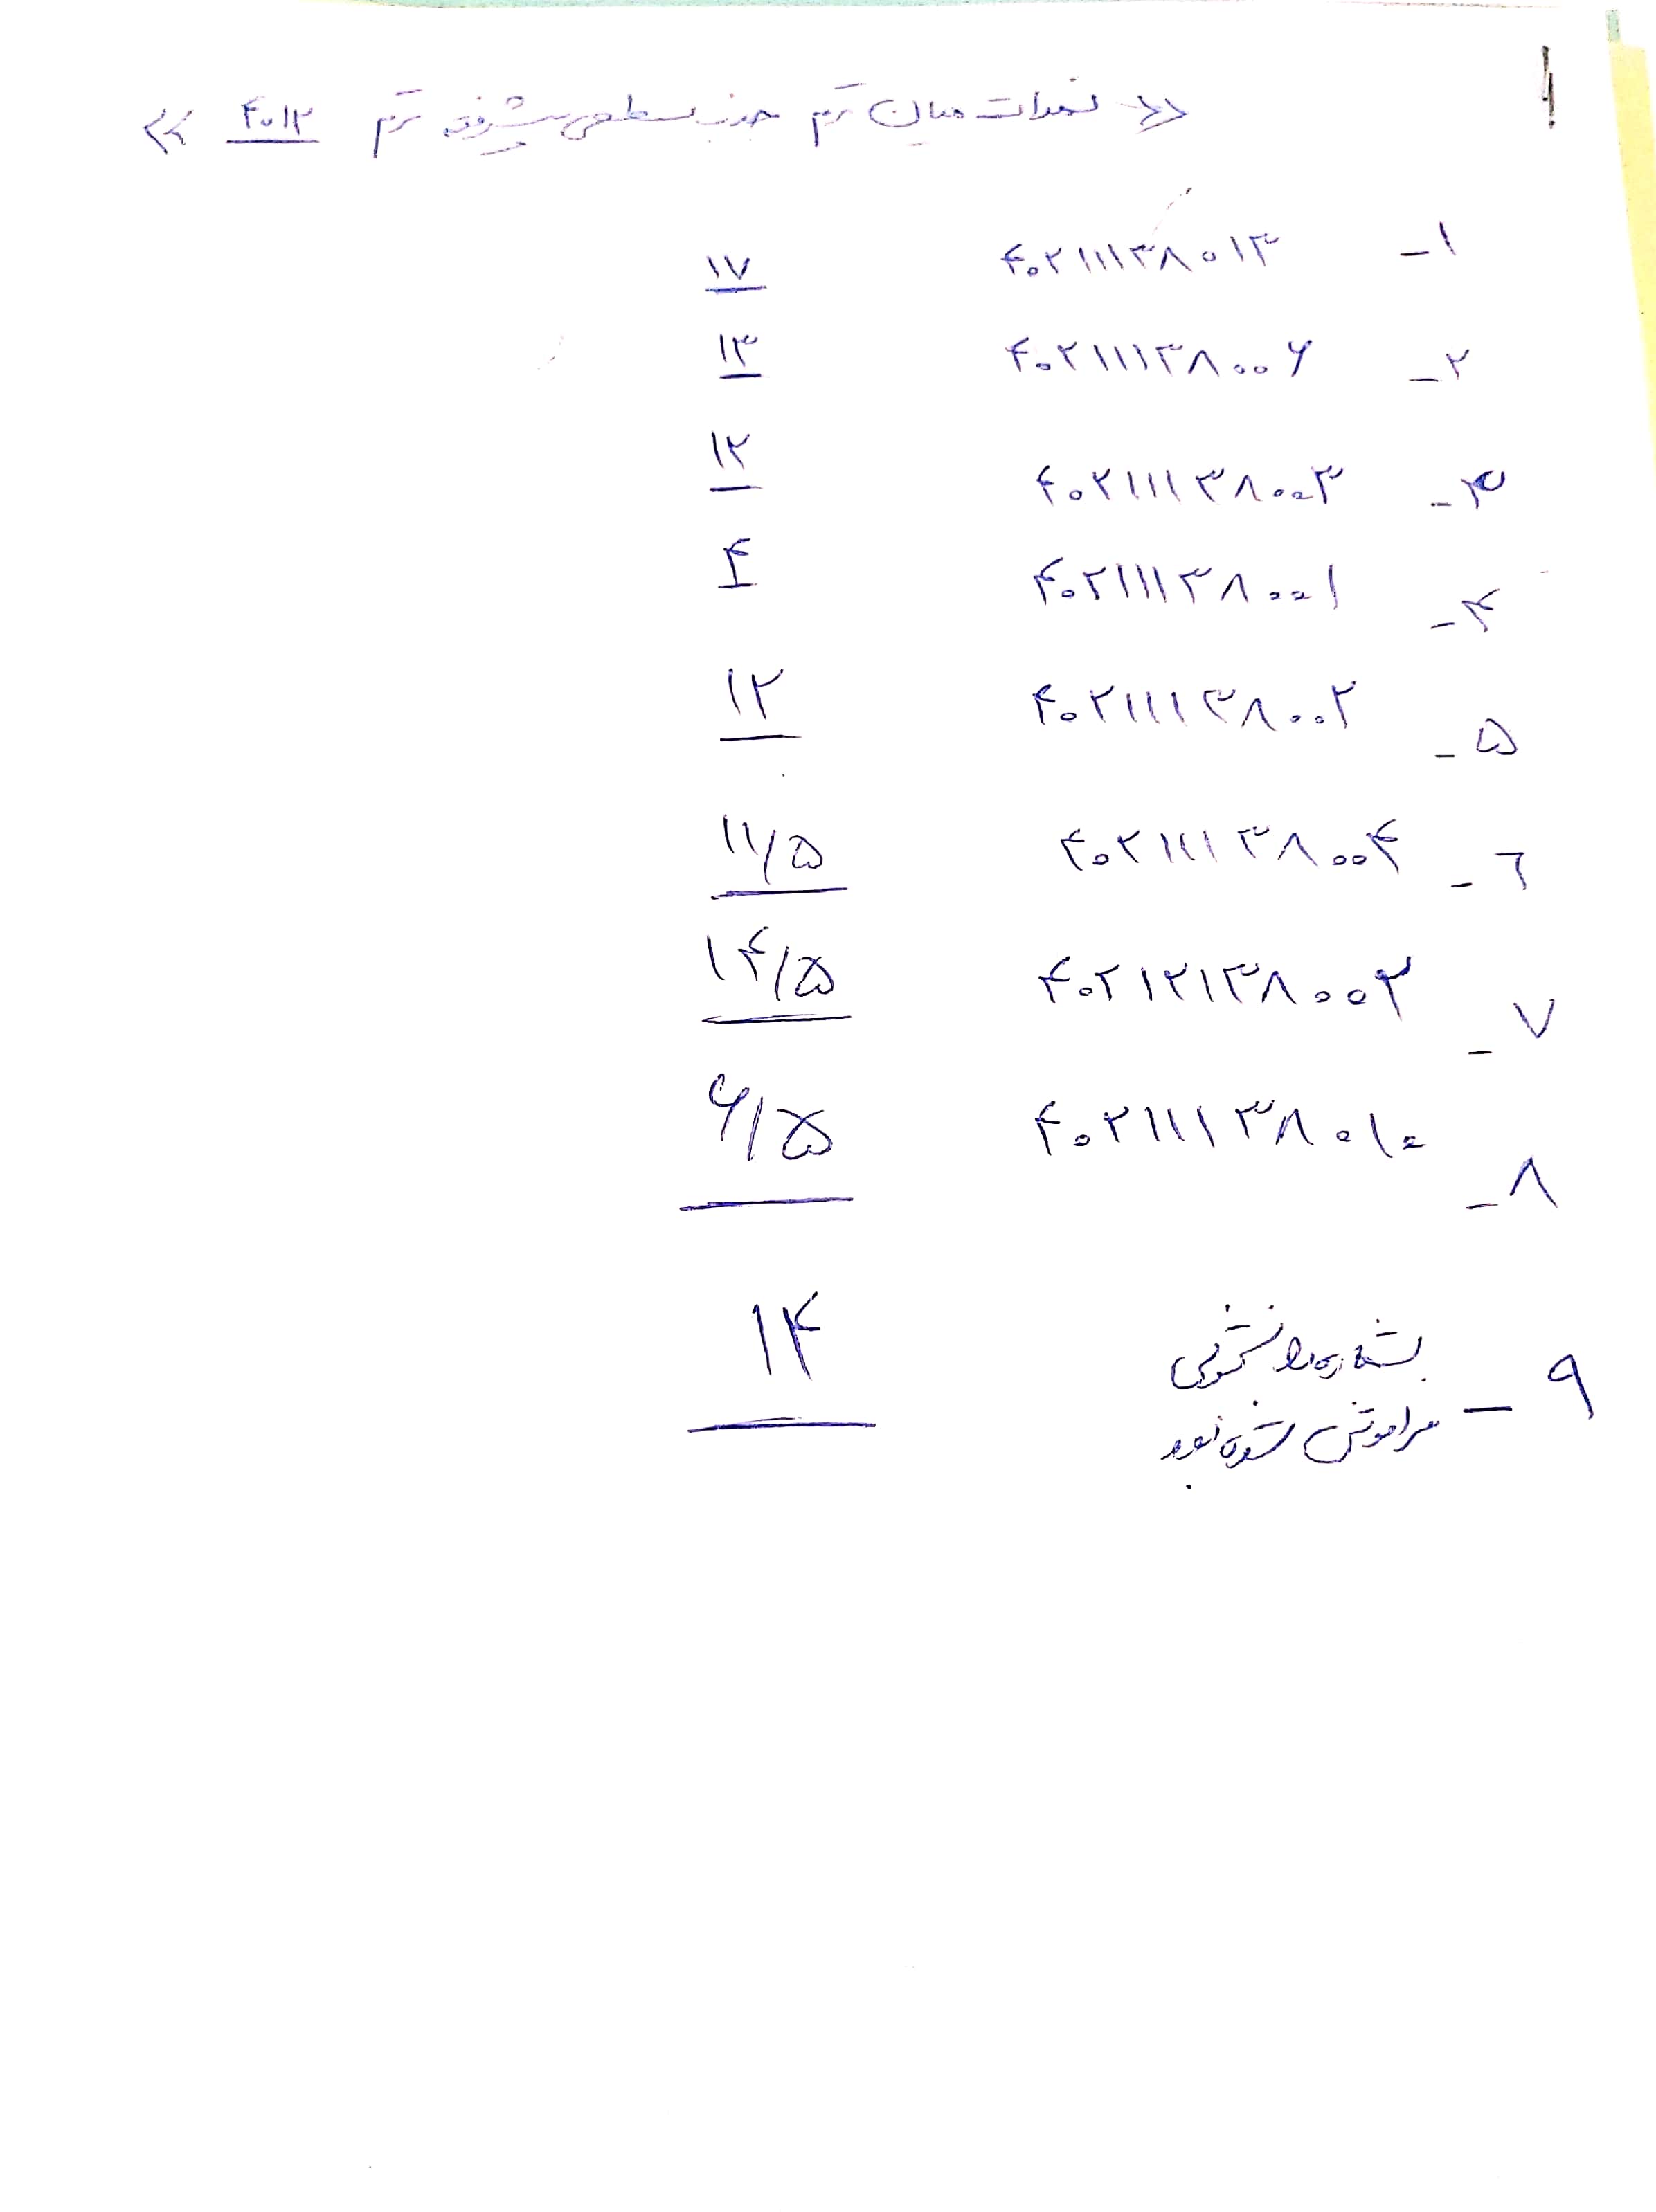 « نمرات میان ترم جذب سطحی پیشرفته ترم ۴۰۱۲ »
۱- ۴۰۲۱۱۱۳۸۰۱۳ ۱۷
۲- ۴۰۲۱۱۱۳۸۰۰۶ ۱۳
۳- ۴۰۲۱۱۱۳۸۰۰۳ ۱۲
۴- ۴۰۲۱۱۱۳۸۰۰۱ ۴
۵- ۴۰۲۱۱۱۳۸۰۰۲ ۱۲
۶- ۴۰۲۱۱۱۳۸۰۰۴ ۱۱/۵
۷- ۴۰۲۱۲۱۳۸۰۰۲ ۱۴/۵
۸- ۴۰۲۱۱۱۳۸۰۱۰ ۶/۵
۹- شماره دانشجویی ۱۴
فراموش شده بود